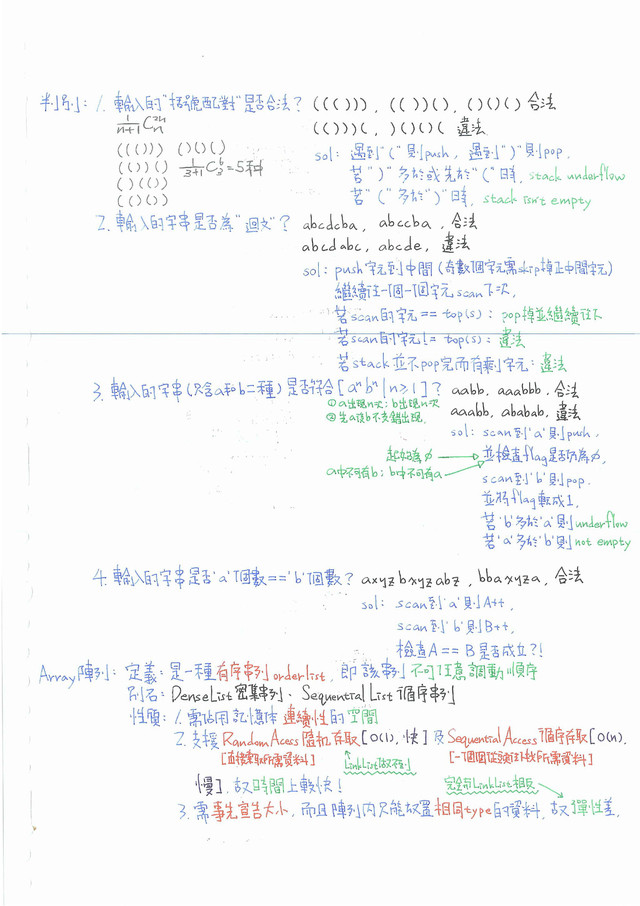 判別: 1. 輸入的"括號配對"是否合法? ((())), (())(), ()()() 合法
1/n+1 C2n n
(()))(, )()()( 違法
((())) ()()()
(())() 1/3+1 C6 3 = 5種
()(())
(()())
sol: 遇到"("則push, 遇到")"則pop.
若")"多於或先於"("時, stack underflow
若"("多於")"時, stack isn't empty
2. 輸入的字串是否為"迴文"? abcdcba, abccba, 合法
abcdabc, abcde, 違法
sol: push字元到中間(奇數個字元需skip掉正中間字元)
繼續往一個一個字元scan下次,
若scan的字元 == top(s): pop掉並繼續往下
若scan的字元 != top(s): 違法
若stack並不pop完而有剩字元: 違法
3. 輸入的字串(只含a和b二種)是否符合[aⁿbⁿ|n≥1]? aabb, aaabbb, 合法
①a出現n次; b出現n次
②先a後b不交錯出現.
aaabb, ababab, 違法
sol: scan到'a'則push,
起始為∅
並檢查flag是否仍為∅,
a中不可有b; b中不可有a
scan到'b'則pop
並將flag轉成1,
若'b'多於'a'則underflow
若'a'多於'b'則not empty
4. 輸入的字串是否'a'個數=='b'個數? axyzbxyzabz, bbaxyza, 合法
sol: scan到'a'則A++,
scan到'b'則B++,
檢查A == B是否成立?!
Array陣列: 定義: 是一種有序串列orderlist, 即該串列不可任意調動順序
別名: DenseList密集串列、Sequential List循序串列
性質: 1. 需佔用記憶体連續性的空間
2. 支援RandomAcess隨机存取[O(1), 快]及Sequential Access循序存取[O(n),
[直接拿取所需資料] LinkList做不到 [一個個從頭往下找所需資料]
慢], 故時間上較快! 完全和LinkList相反
3. 需事先宣告大小, 而且陣列內只能放置相同type的資料, 故彈性差.